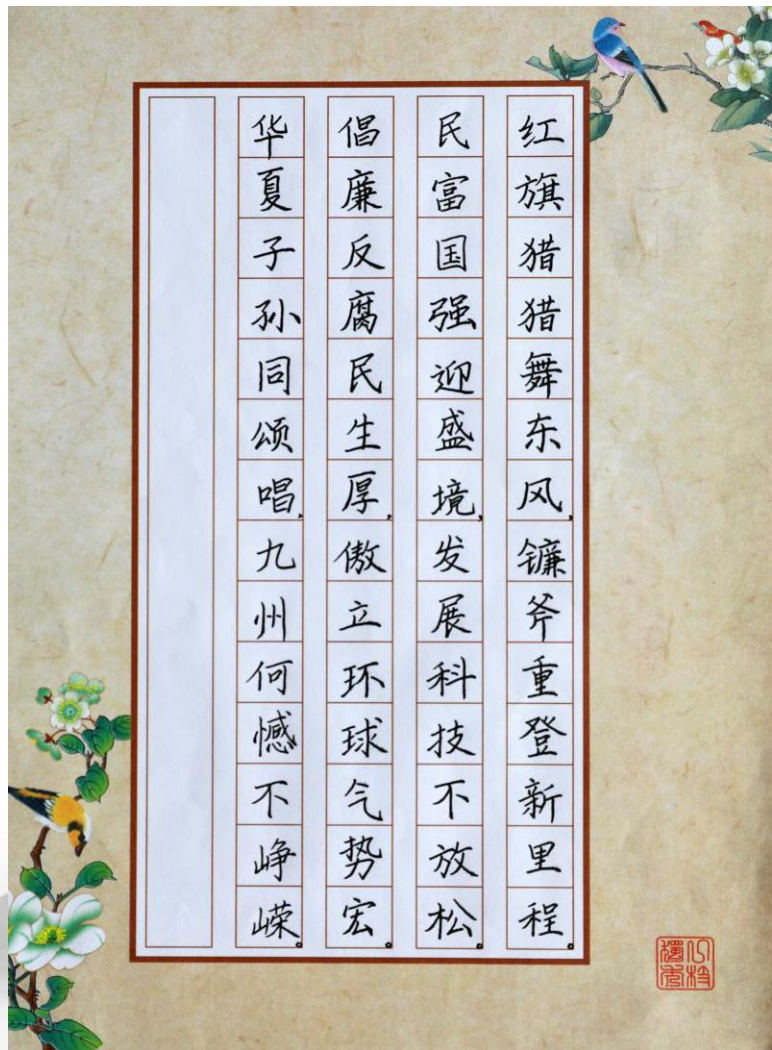 红旗猎猎舞东风,镰斧重登新里程。
民富国强迎盛境,发展科技不放松。
倡廉反腐民生厚,傲立环球气势宏。
华夏子孙同颂唱,九州何憾不峥嵘。